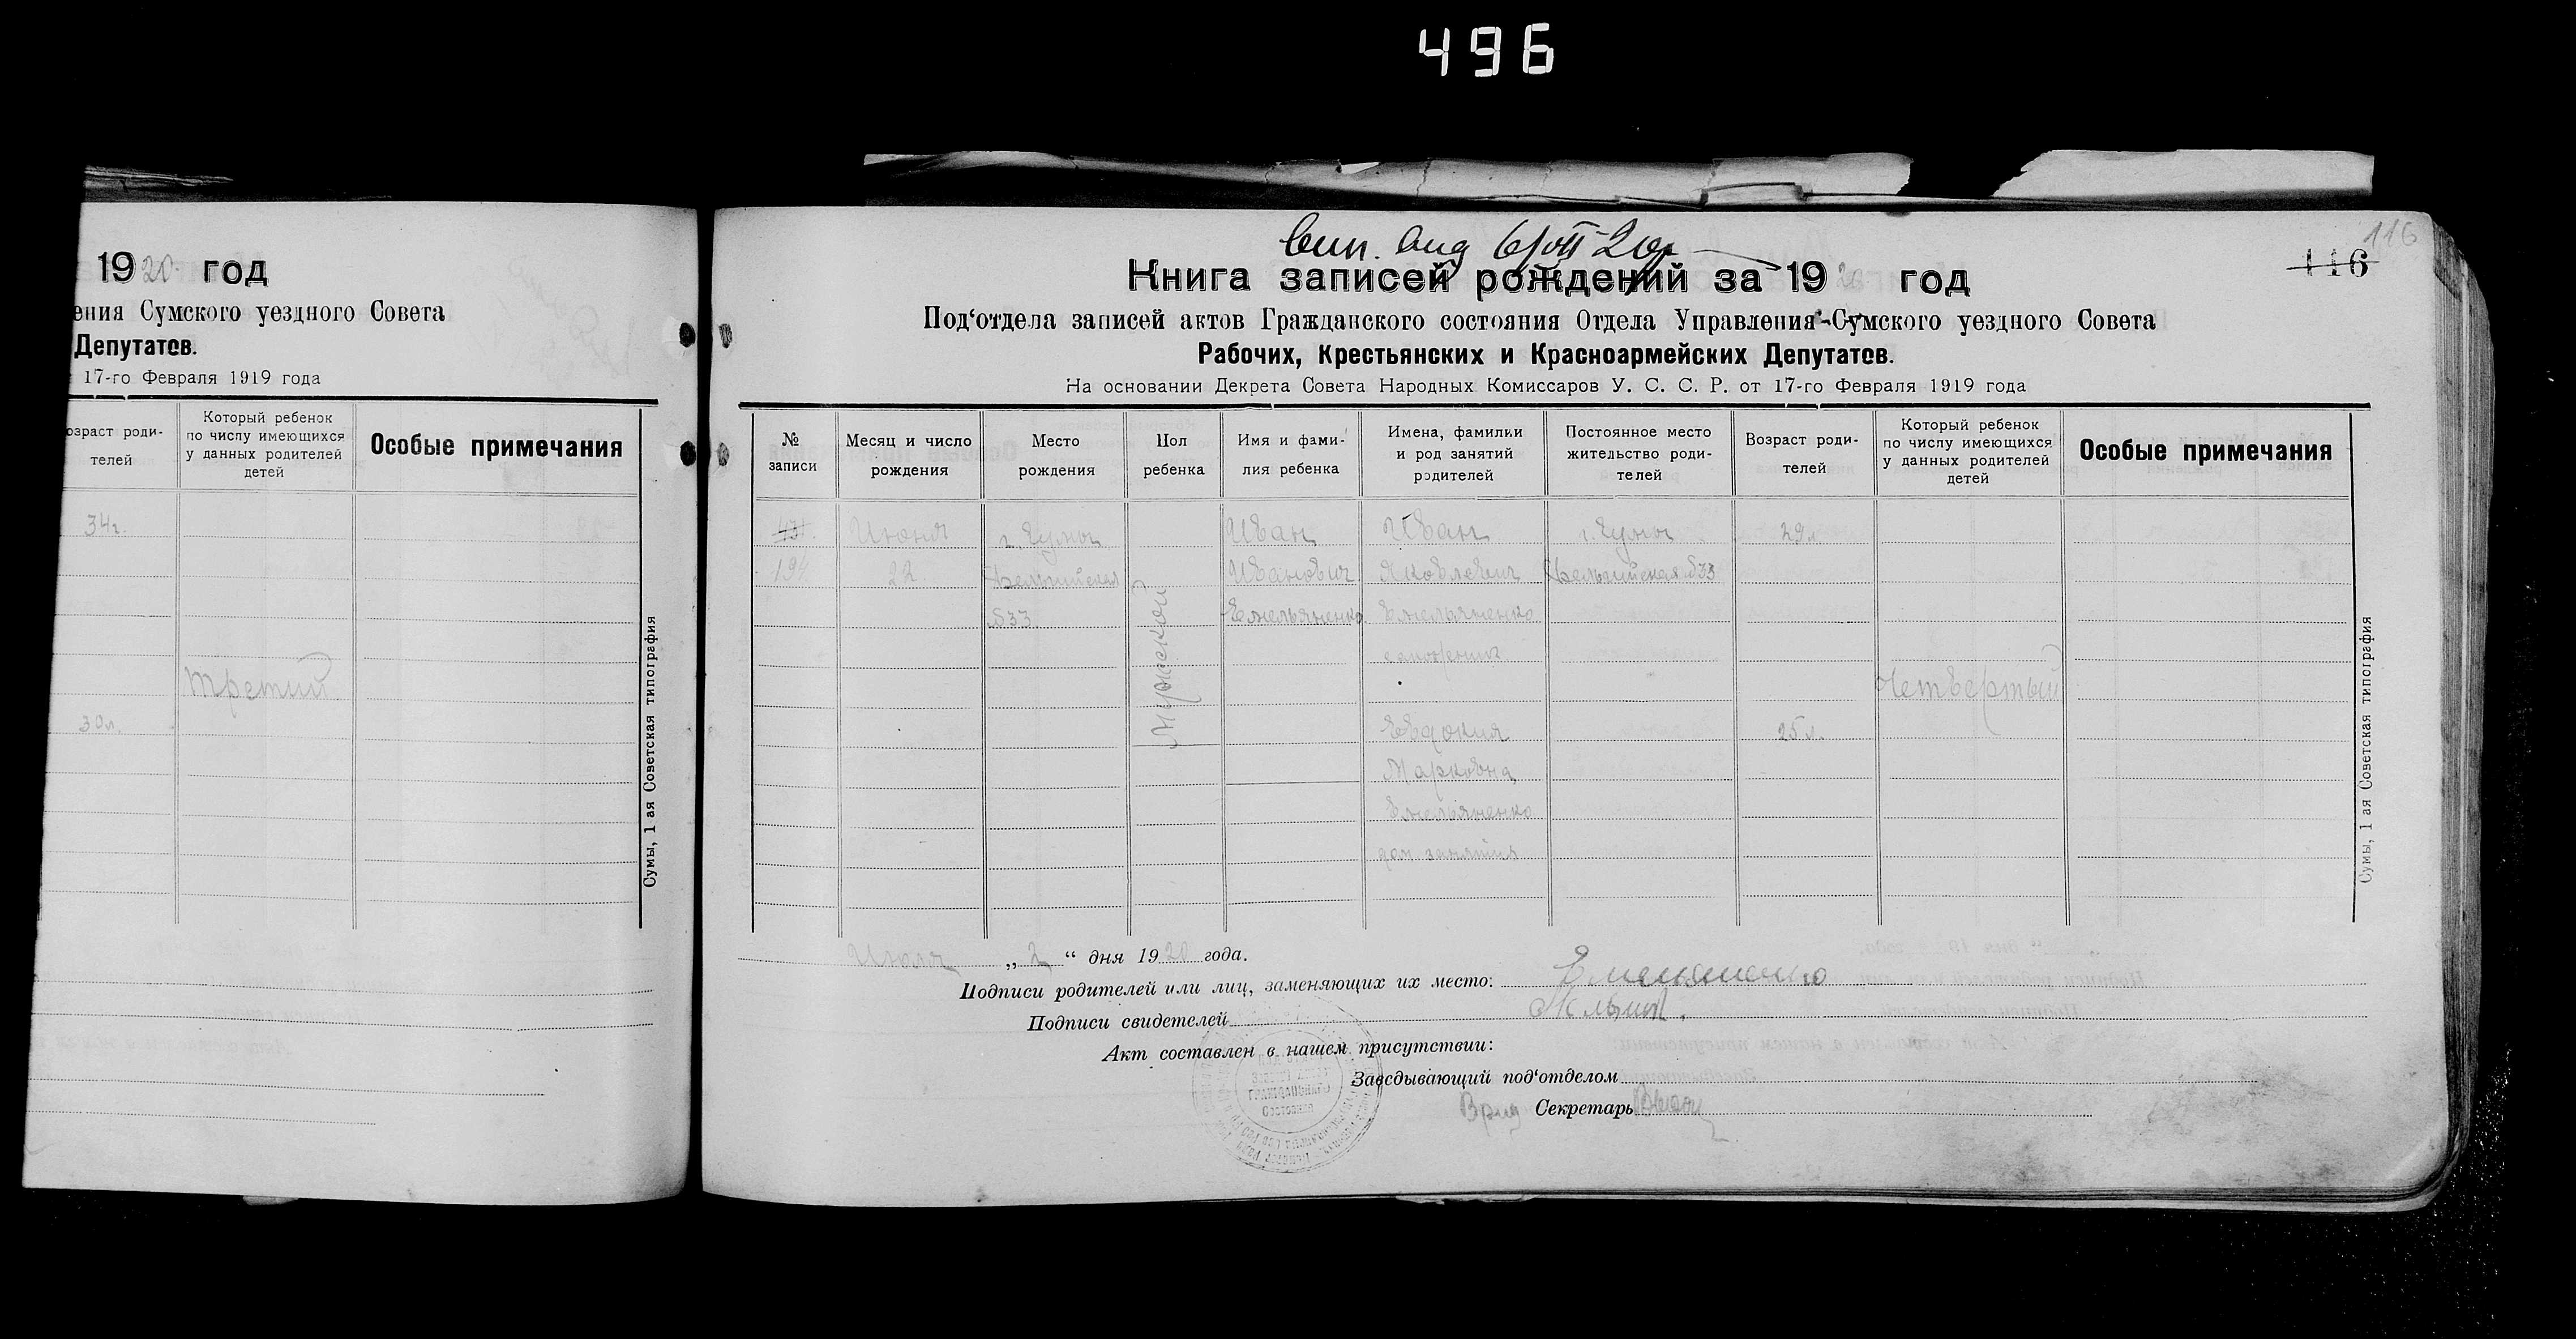 496
19 20 год
ения Сумского уездного Совета
Депутатов.
17-го Февраля 1919 года
озраст роди-
телей
Который ребенок
по числу имеющихся
у данных родителей
детей
Особые примечания
34г.
третий
30л.
Сумы, 1 ая Советская типография
116
116
Книга записей рождений за 19 20 год
Под‘отдела записей актов Гражданского состояния Отдела Управления Сумского уездного Совета
Рабочих, Крестьянских и Красноармейских Депутатов.
На основании Декрета Совета Народных Комиссаров У. С. С. Р. от 17-го Февраля 1919 года
№
записи
Месяц и число
рождения
Место
рождения
Пол
ребенка
Имя и фами-
лия ребенка
Имена, фамилии
и род занятий
родителей
Постоянное место
жительство роди-
телей
Возраст роди-
телей
Который ребенок
по числу имеющихся
у данных родителей
детей
Особые примечания
194
Июня
22
г. Сумы
533
Мужской
Иван
Иванович
Емельяненко
Иван
Яковлевич
Емельяненко
Евдокия
Марковна
Емельяненко
дом. занятия
г. Сумы
533
29л.
25 л.
Четвертый
Сумы, 1 ая Советская типография
Июля „ 2 “ дня 19 20 года.
Подписи родителей или лиц, заменяющих их место: Емельяненко
Подписи свидетелей
Акт составлен в нашем присутствии:
Заведывающий под‘отделом
Врид Секретарь
Гражданского
Состояния